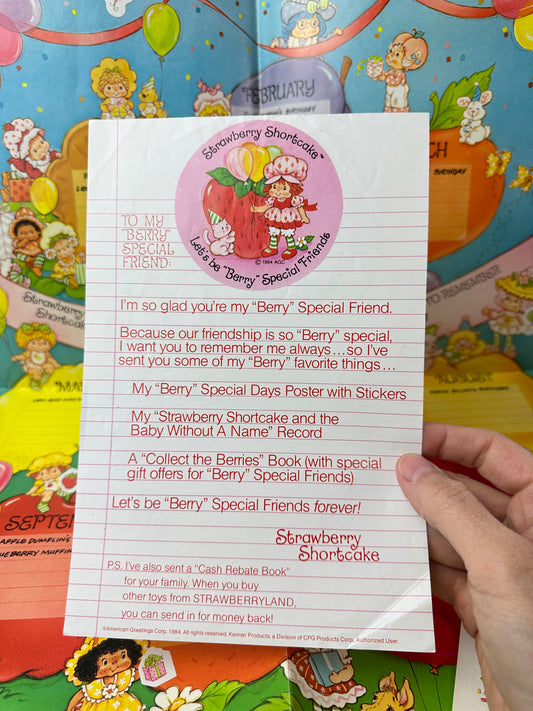 FEBRUARY
BIRTHDAY
CH
BIRTHDAY
Strawberry
Shortcake
TO REMEMBER
AUGUST
BIRTHDAY
MA
SEPTEM
APPLE DUMPLIN'S
BLUEBERRY MUFFIN
Strawberry Shortcake™
Let's be "Berry" Special Friends
© 1984 AGC
TO MY
"BERRY"
SPECIAL
FRIEND:
I'm so glad you're my "Berry" Special Friend.
Because our friendship is so "Berry" special,
I want you to remember me always...so I've
sent you some of my "Berry" favorite things...
My "Berry" Special Days Poster with Stickers
My "Strawberry Shortcake and the
Baby Without A Name" Record
A "Collect the Berries" Book (with special
gift offers for "Berry" Special Friends)
Let's be "Berry" Special Friends forever!
Strawberry
Shortcake
P.S. I've also sent a "Cash Rebate Book"
for your family. When you buy
other toys from STRAWBERRYLAND,
you can send in for money back!
©American Greetings Corp. 1984, All rights reserved, Kenner Products, a Division of CPG Products Corp. Authorized User.